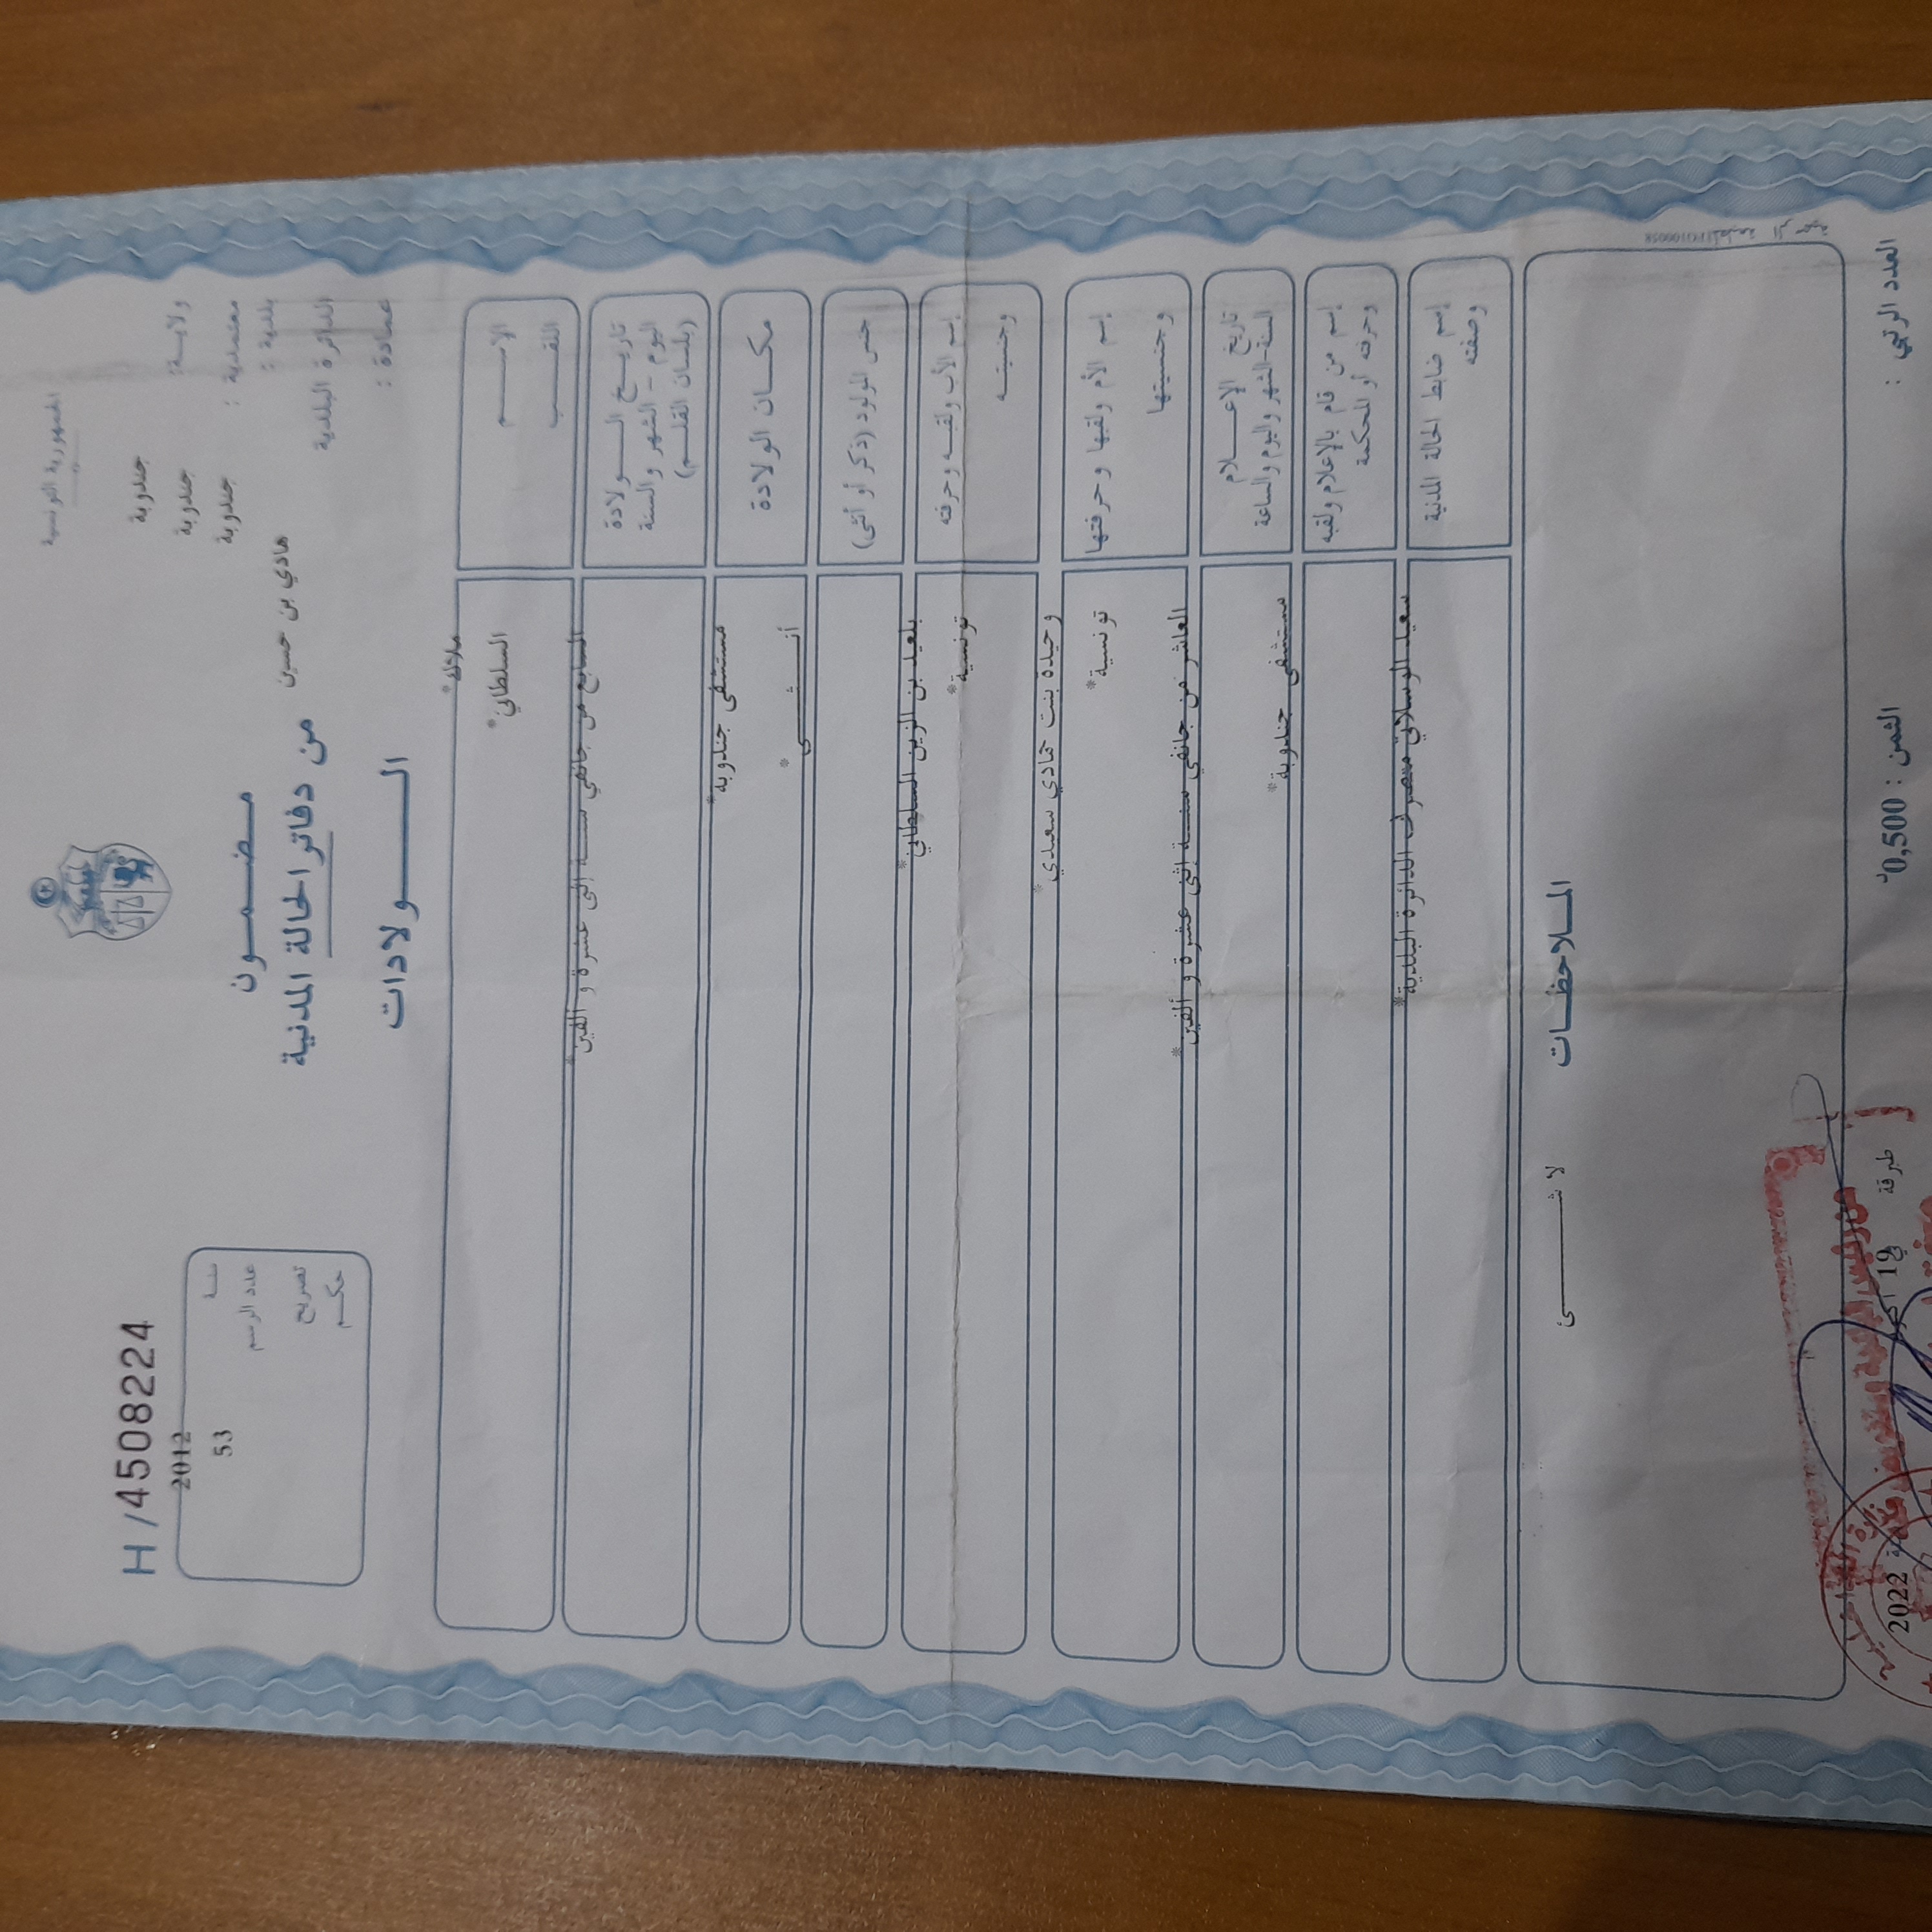 الجمهورية التونسية
H / 4508224
ولايــة : جندوبة
معتمدية : جندوبة
بلدية : جندوبة
الدائرة البلدية هادي بن حسين
عمادة :
سنــة 2012
عدد الرسم 53
تصريح
حكــم
مـضـمــون
من دفاتر الحالة المدنية
الــولادات
الإســـم ملاك*
اللقـــب السلطاني*
تاريــخ الــــولادة
اليوم – الشهر والسنة
(بلسان القلــم)
السابع من جانفي سنــة إثنى عشرة و ألفين*
مكــان الولادة مستشفى جندوبة*
جنس المولود (ذكر أو أنثى) أنـــثـــــى*
إسم الأب ولقبــه وحرفته بلعيد بن الزين السلطاني*
وجنسيتــه تونسية*
إسم الأم ولقبها وحرفتها وحيدة بنت حمادي سعيدي*
وجنسيتــها تونسية*
تاريخ الإعـــلام
السنة-الشهر واليوم والساعة
العاشر من جانفي سنــة إثنى عشرة و ألفين*
إسم من قام بالإعلام ولقبه
وحرفته أو المحكمة
مستشفى جندوبة*
إسم ضابط الحالة المدنية
وصفته
سعيد الوسلاتي متصرف الدائرة البلدية*
المــلاحظــات
لا شـــــــئ
العدد الرتبي :
الثمن : 0,500د
طبرقة في 19 2022